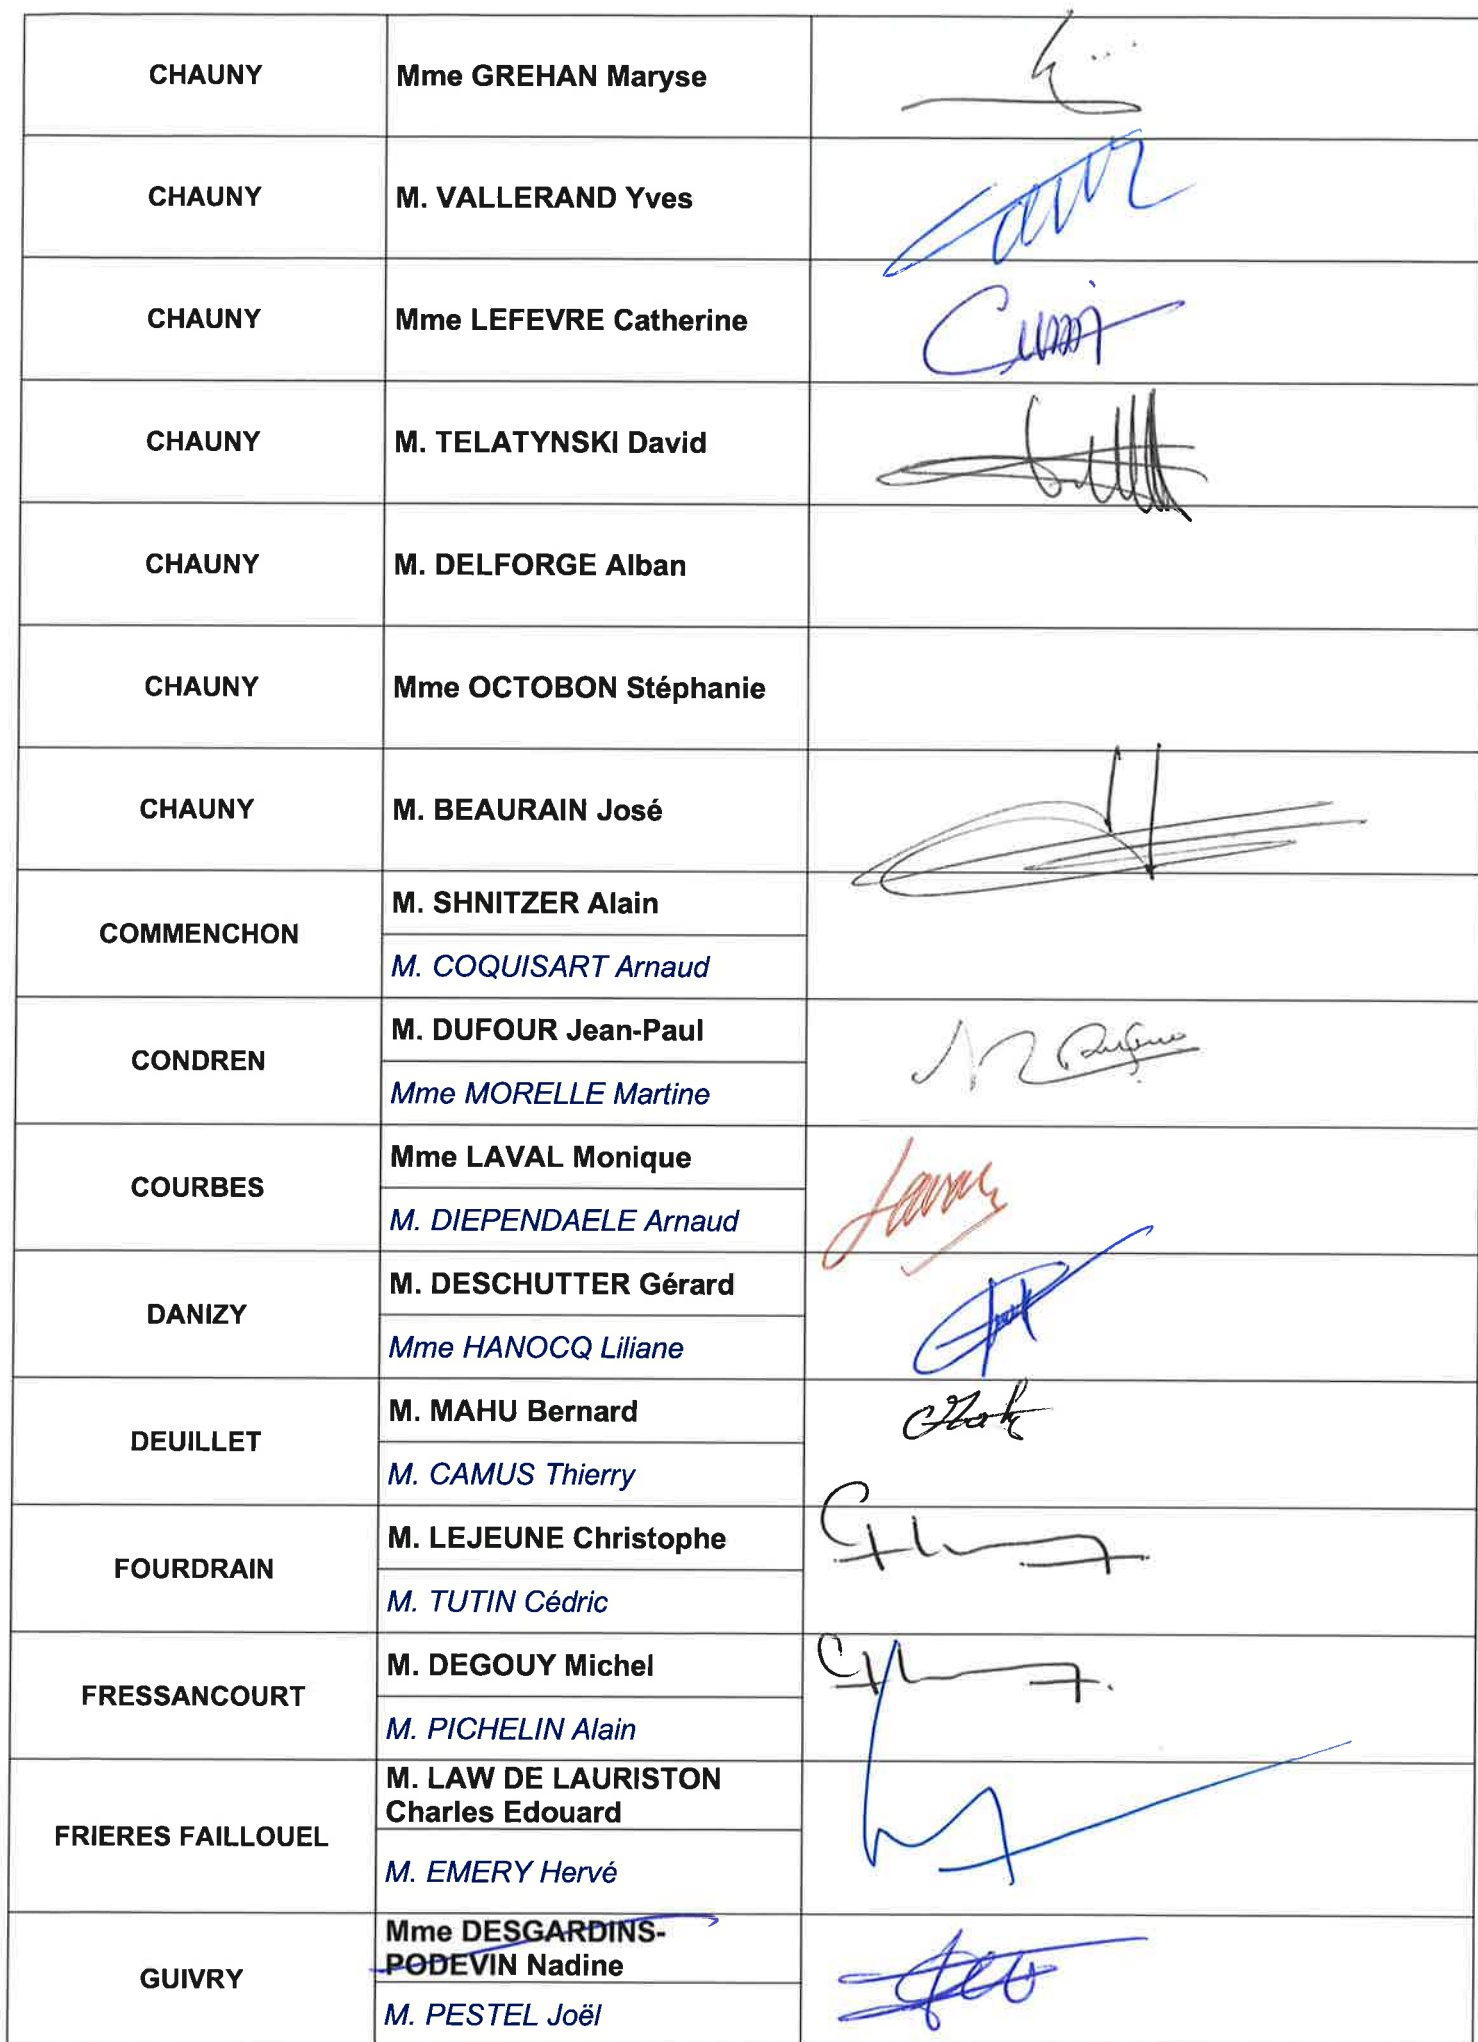 CHAUNY
Mme GREHAN Maryse
CHAUNY
M. VALLERAND Yves
CHAUNY
Mme LEFEVRE Catherine
CHAUNY
M. TELATYNSKI David
CHAUNY
M. DELFORGE Alban
CHAUNY
Mme OCTOBON Stéphanie
CHAUNY
M. BEAURAIN José
COMMENCHON
M. SHNITZER Alain
M. COQUISART Arnaud
CONDREN
M. DUFOUR Jean-Paul
Mme MORELLE Martine
COURBES
Mme LAVAL Monique
M. DIEPENDAELE Arnaud
DANIZY
M. DESCHUTTER Gérard
Mme HANOCQ Liliane
DEUILLET
M. MAHU Bernard
M. CAMUS Thierry
FOURDRAIN
M. LEJEUNE Christophe
M. TUTIN Cédric
FRESSANCOURT
M. DEGOUY Michel
M. PICHELIN Alain
FRIERES FAILLOUEL
M. LAW DE LAURISTON
Charles Edouard
M. EMERY Hervé
GUIVRY
Mme DESGARDINS-
PODEVIN Nadine
M. PESTEL Joël